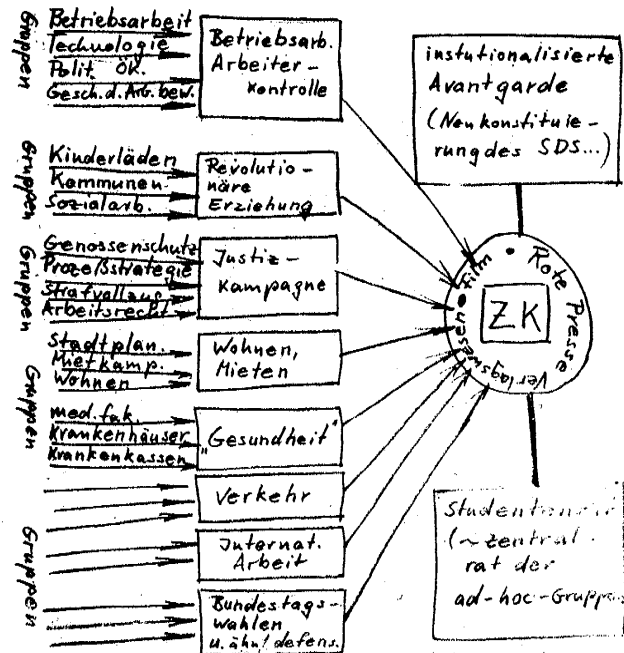 Gruppen
Betriebsarbeit
Technologie
Polit. Ök.
Gesch. d. Arb. bew.
Betriebsarb.
Arbeiter-
kontrolle
Gruppen
Kinderläden
Kommunen
Sozialarb.
Revolutio-
näre
Erziehung
Gruppen
Genossenschutz
Prozeßstrategie
Strafvollzug
Arbeitsrecht
Justiz-
kampagne
Gruppen
Stadtplan.
Mietkamp.
Wohnen
Wohnen,
Mieten
med. fak.
Krankenhäuser
Krankenkassen
„Gesundheit"
Verkehr
Gruppen
Internat.
Arbeit
Bundestags-
wahlen
u. ähnl. defens.
institutionalisierte
Avantgarde
(Neukonstituie-
rung des SDS...)
film • Rote Presse
Verlagswesen •
ZK
(~zentral-
rat der
ad-hoc-Gruppen